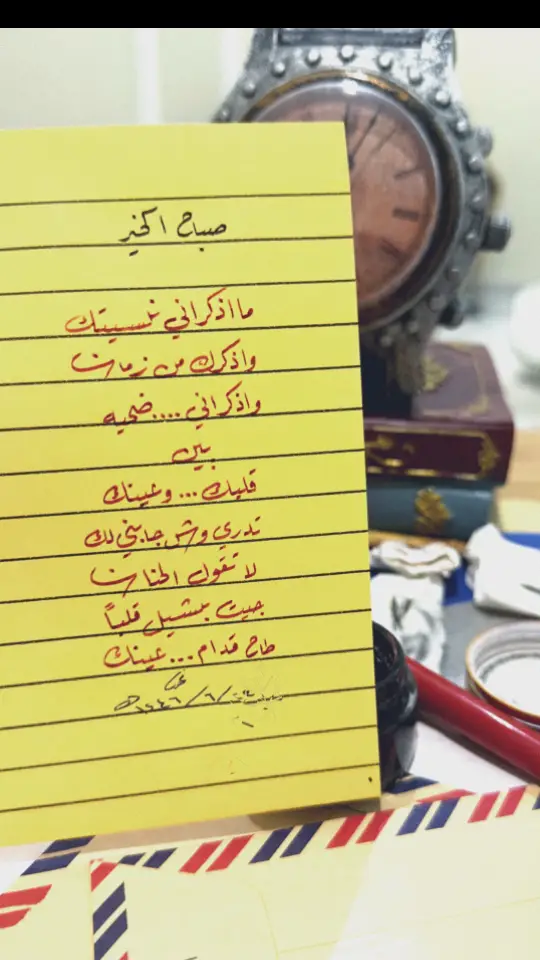 صباح الخير
ما اذكراني نسيتك
واذكرك من زمان
واذكراني .... ضحيه
بين
قلبك ... وعينك
تدري وش جابني لك
لا تقول الحنان
جيت بشيل قلباً
طاح قدام ... عينك